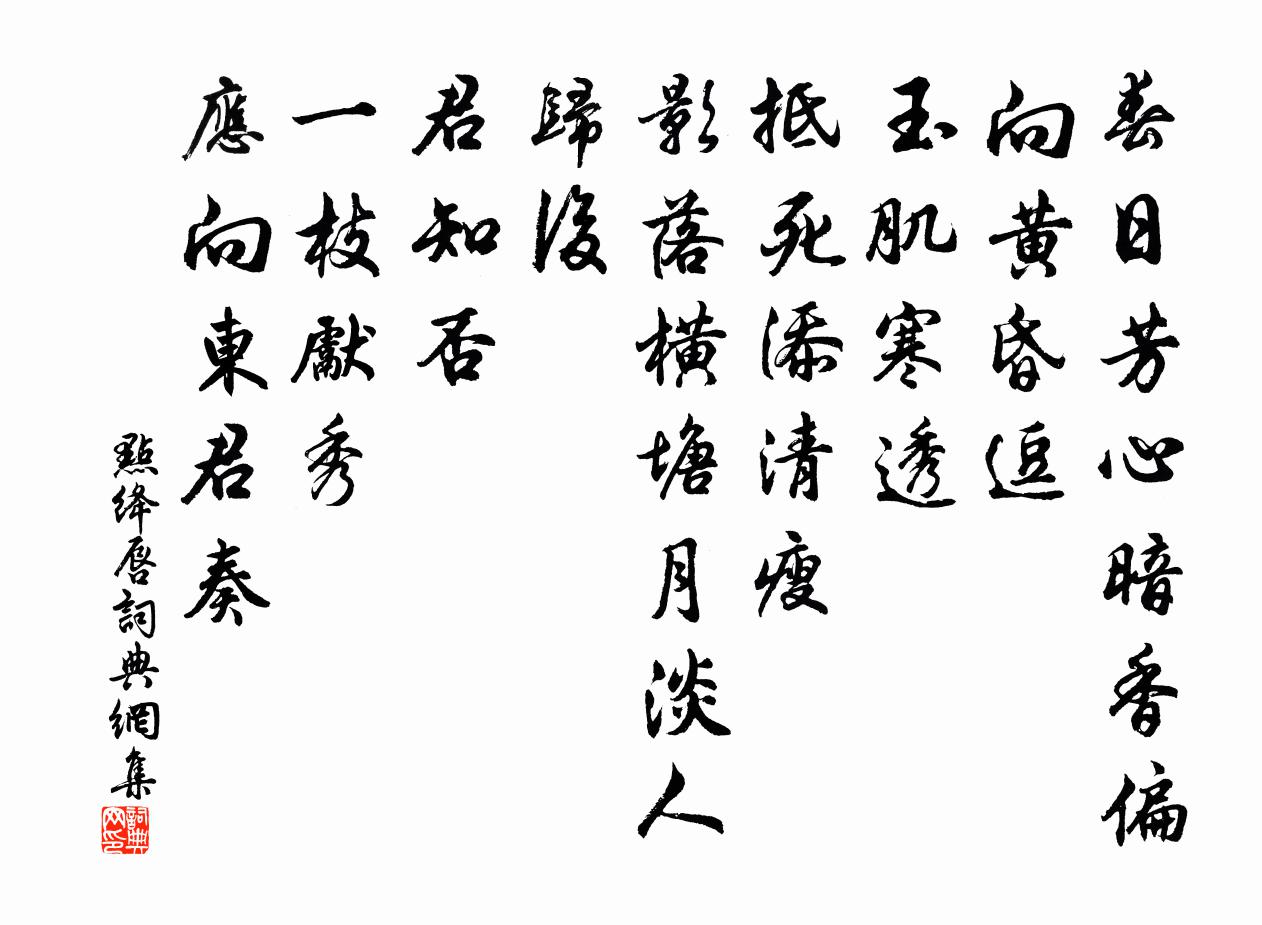 春日芳心暗香偏
向黃昏逗
玉肌寒透
抵死添清瘦
影落橫塘月淡人
歸後
君知否
一枝獻秀
應向東君奏
點絳唇詞典網集
詞典網印